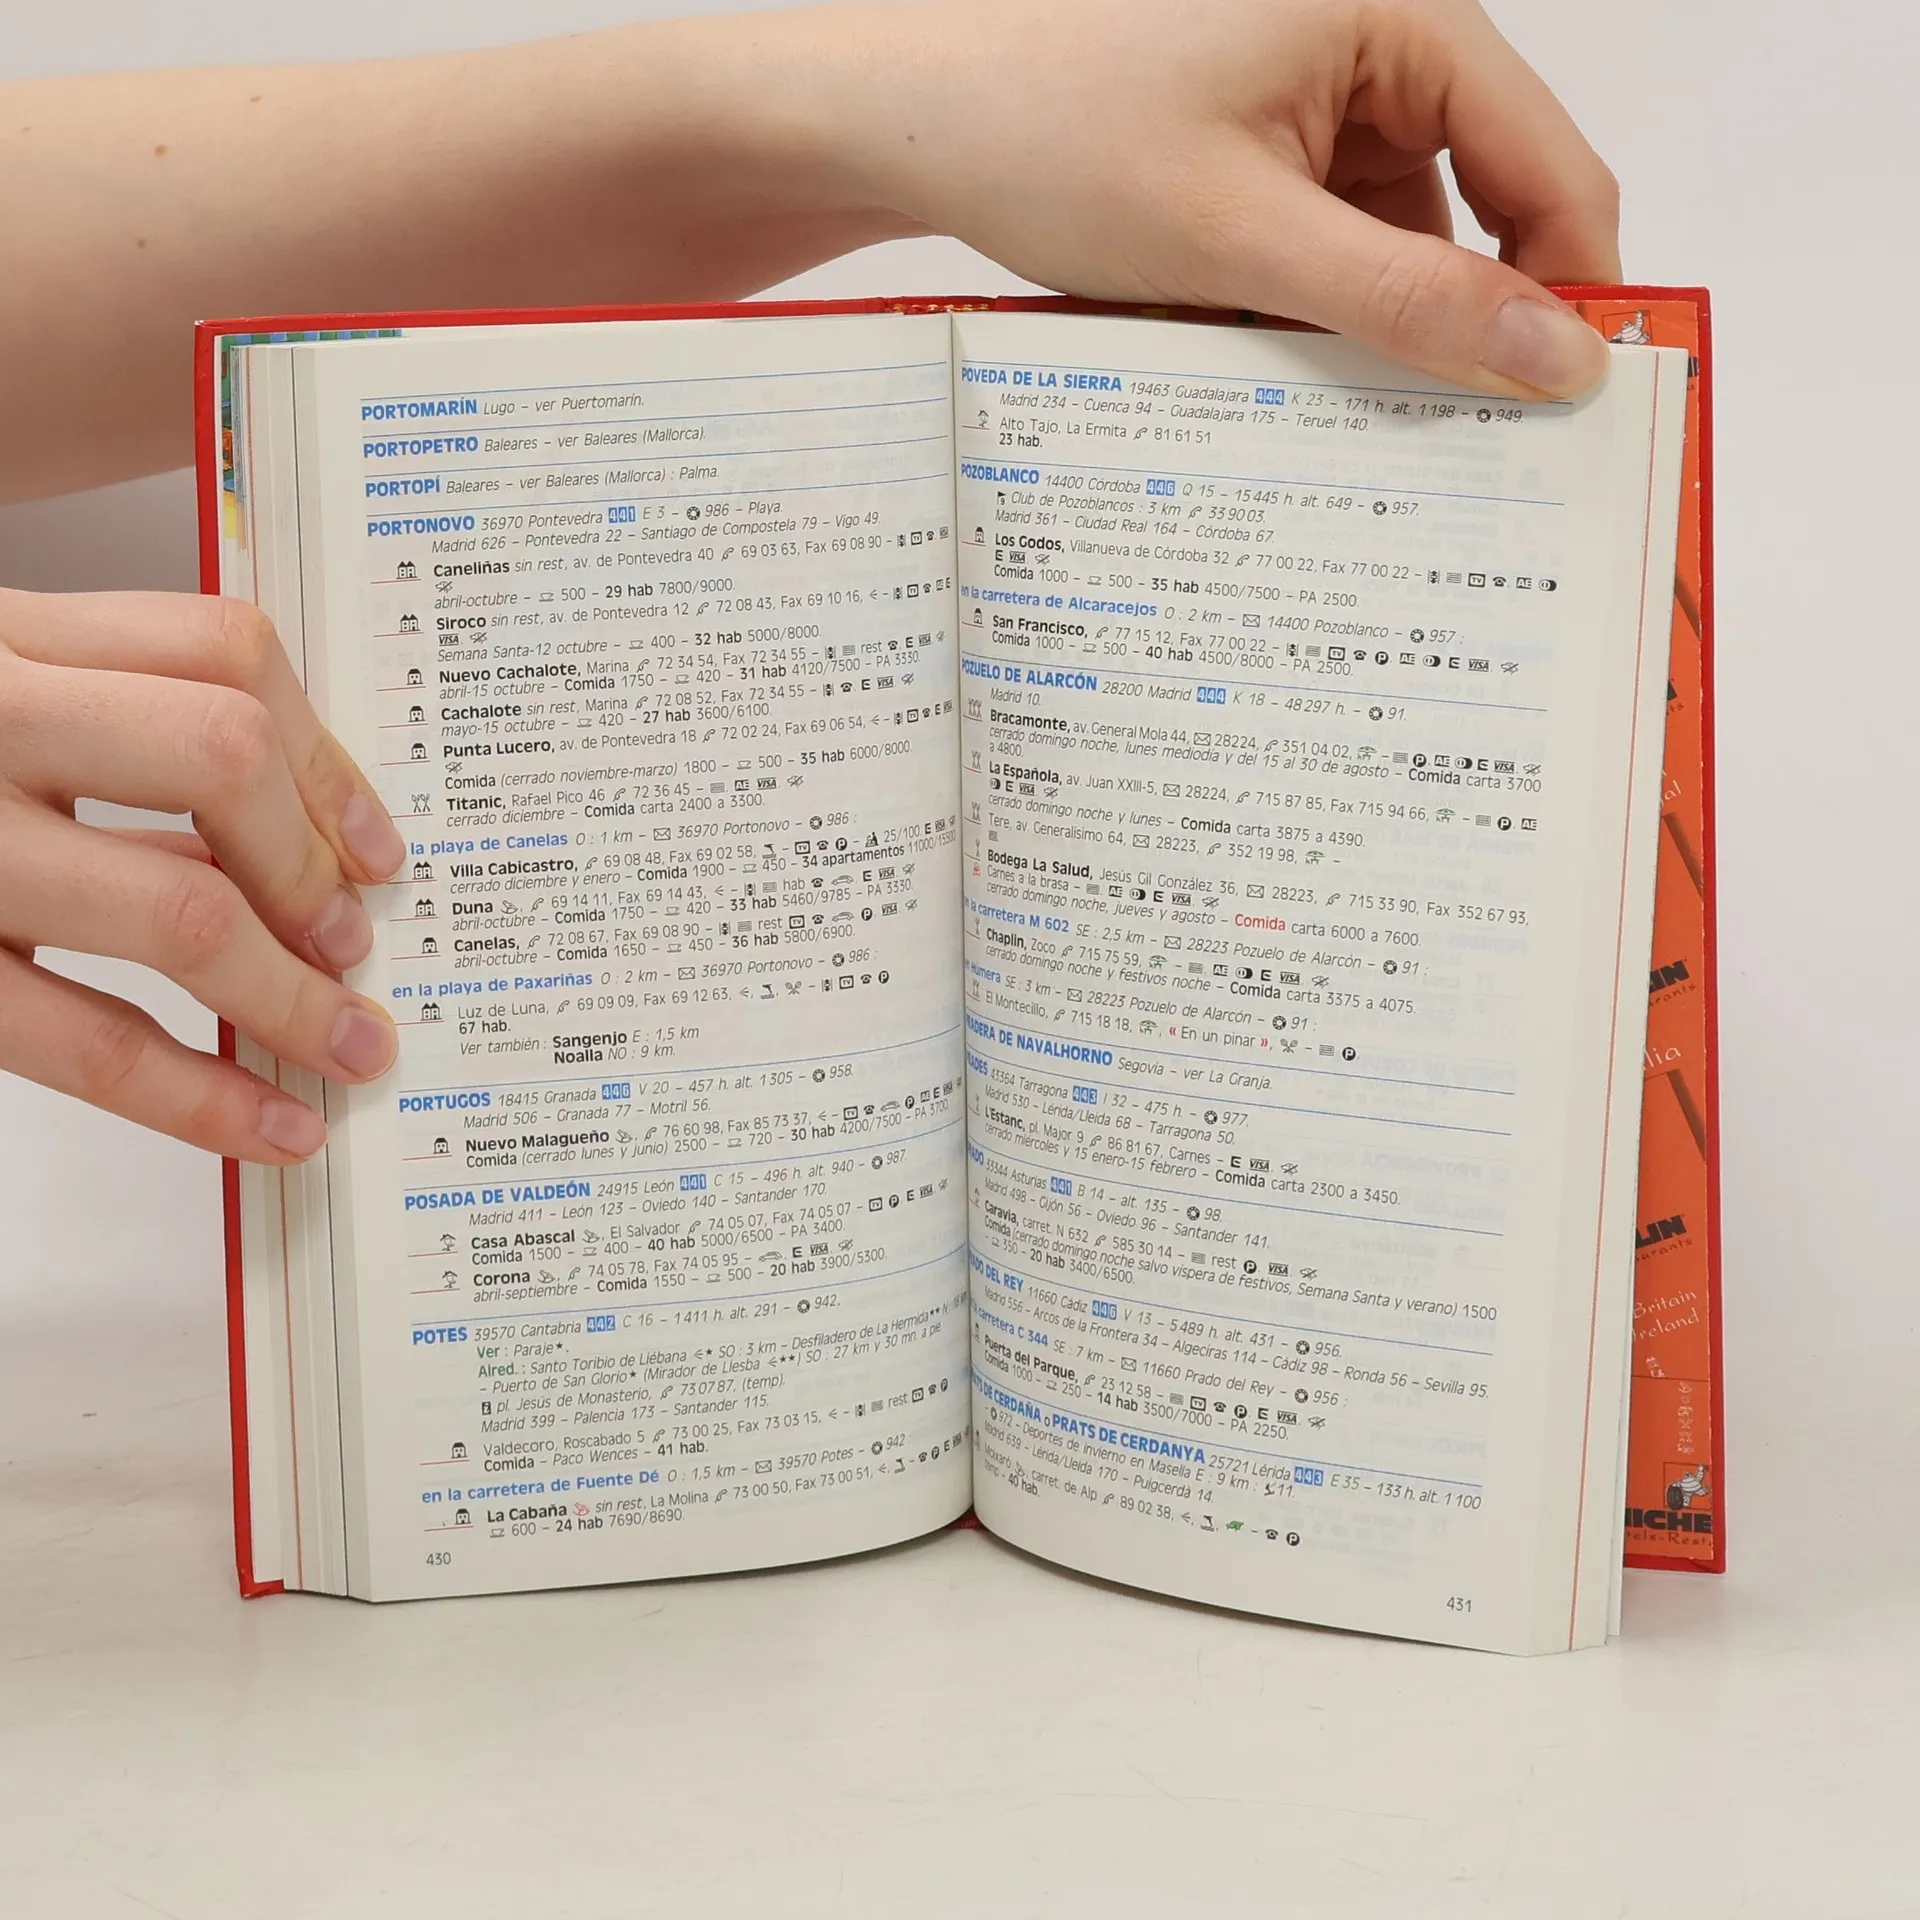 PORTOMARÍN Lugo – ver Puertomarín.
PORTOPETRO Baleares – ver Baleares (Mallorca).
PORTOPÍ Baleares – ver Baleares (Mallorca) : Palma.
PORTONOVO 36970 Pontevedra 441 E 3 – 986 – Playa.
Madrid 626 – Pontevedra 22 – Santiago de Compostela 79 – Vigo 49.
Caneliñas sin rest, av. de Pontevedra 40 69 03 63, Fax 69 08 90 – TV VISA
abril-octubre – 500 – 29 hab 7800/9000.
Siroco sin rest, av. de Pontevedra 12 72 08 43, Fax 69 10 16, – TV AE E
VISA
Semana Santa-12 octubre – 400 – 32 hab 5000/8000.
Nuevo Cachalote, Marina 72 34 54, Fax 72 34 55 – rest E VISA
abril-15 octubre – Comida 1750 – 420 – 31 hab 4120/7500 – PA 3330.
Cachalote sin rest, Marina 72 08 52, Fax 72 34 55 – E VISA
mayo-15 octubre – 420 – 27 hab 3600/6100.
Punta Lucero, av. de Pontevedra 18 72 02 24, Fax 69 06 54, – TV E VISA
Comida (cerrado noviembre-marzo) 1800 – 500 – 35 hab 6000/8000.
Titanic, Rafael Pico 46 72 36 45 – AE VISA
cerrado diciembre – Comida carta 2400 a 3300.
la playa de Canelas O : 1 km – 36970 Portonovo – 986 :
Villa Cabicastro, 69 08 48, Fax 69 02 58, – TV P – 25/100. E VISA
cerrado diciembre y enero – Comida 1900 – 450 – 34 apartamentos 11000/15500
Duna , 69 14 11, Fax 69 14 43, – hab E VISA
abril-octubre – Comida 1750 – 420 – 33 hab 5460/9785 – PA 3330.
Canelas, 72 08 67, Fax 69 08 90 – rest TV P VISA
abril-octubre – Comida 1650 – 450 – 36 hab 5800/6900.
en la playa de Paxariñas O : 2 km – 36970 Portonovo – 986 :
Luz de Luna, 69 09 09, Fax 69 12 63, – TV P
67 hab.
Ver también : Sangenjo E : 1,5 km
Noalla NO : 9 km.
PORTUGOS 18415 Granada 446 V 20 – 457 h. alt. 1305 – 958.
Madrid 506 – Granada 77 – Motril 56.
Nuevo Malagueño , 76 60 98, Fax 85 73 37, – TV P AE E VISA
Comida (cerrado lunes y junio) 2500 – 720 – 30 hab 4200/7500 – PA 3700
POSADA DE VALDEÓN 24915 León 441 C 15 – 496 h. alt. 940 – 987.
Madrid 411 – León 123 – Oviedo 140 – Santander 170.
Casa Abascal , El Salvador 74 05 07, Fax 74 05 07 – TV P E VISA
Comida 1500 – 400 – 40 hab 5000/6500 – PA 3400.
Corona , 74 05 78, Fax 74 05 95 – E VISA
abril-septiembre – Comida 1550 – 500 – 20 hab 3900/5300.
POTES 39570 Cantabria 442 C 16 – 1411 h. alt. 291 – 942.
Ver : Paraje★.
Alred. : Santo Toribio de Liébana ★ SO : 3 km – Desfiladero de La Hermida★★ N :
– Puerto de San Glorio★ (Mirador de Llesba ★★) SO : 27 km y 30 mn. a pie.
pl. Jesús de Monasterio, 73 07 87, (temp).
Madrid 399 – Palencia 173 – Santander 115.
Valdecoro, Roscabado 5 73 00 25, Fax 73 03 15, – rest TV P
Comida – Paco Wences – 41 hab.
en la carretera de Fuente Dé O : 1,5 km – 39570 Potes – 942 :
La Cabaña sin rest, La Molina 73 00 50, Fax 73 00 51, – P E VISA
600 – 24 hab 7690/8690.
430
POVEDA DE LA SIERRA 19463 Guadalajara 444 K 23 – 171 h. alt. 1198 – 949.
Madrid 234 – Cuenca 94 – Guadalajara 175 – Teruel 140.
Alto Tajo, La Ermita 81 61 51
23 hab.
POZOBLANCO 14400 Córdoba 446 Q 15 – 15445 h. alt. 649 – 957.
9 Club de Pozoblancos : 3 km 33 90 03.
Madrid 361 – Ciudad Real 164 – Córdoba 67.
Los Godos, Villanueva de Córdoba 32 77 00 22, Fax 77 00 22 – TV AE
E VISA
Comida 1000 – 500 – 35 hab 4500/7500 – PA 2500.
en la carretera de Alcaracejos O : 2 km – 14400 Pozoblanco – 957 :
San Francisco, 77 15 12, Fax 77 00 22 – TV P AE E VISA
Comida 1000 – 500 – 40 hab 4500/8000 – PA 2500.
POZUELO DE ALARCÓN 28200 Madrid 444 K 18 – 48297 h. – 91.
Madrid 10.
Bracamonte, av. General Mola 44, 28224, 351 04 02, – P AE E VISA
cerrado domingo noche, lunes mediodía y del 15 al 30 de agosto – Comida carta 3700
a 4800.
La Española, av. Juan XXIII-5, 28224, 715 87 85, Fax 715 94 66, – P AE
E VISA
cerrado domingo noche y lunes – Comida carta 3875 a 4390.
Tere, av. Generalísimo 64, 28223, 352 19 98, –
Bodega La Salud, Jesús Gil González 36, 28223, 715 33 90, Fax 352 67 93,
Carnes a la brasa – AE E VISA
cerrado domingo noche, jueves y agosto – Comida carta 6000 a 7600.
en la carretera M 602 SE : 2,5 km – 28223 Pozuelo de Alarcón – 91 :
Chaplin, Zoco 715 75 59, – AE E VISA
cerrado domingo noche y festivos noche – Comida carta 3375 a 4075.
en Húmera SE : 3 km – 28223 Pozuelo de Alarcón – 91 :
El Montecillo, 715 18 18, , « En un pinar », – P
PRADERA DE NAVALHORNO Segovia – ver La Granja.
43364 Tarragona 443 I 32 – 475 h. – 977.
Madrid 530 – Lérida/Lleida 68 – Tarragona 50.
L'Estanc, pl. Major 9 86 81 67, Carnes – E VISA
cerrado miércoles y 15 enero-15 febrero – Comida carta 2300 a 3450.
33344 Asturias 441 B 14 – alt. 135 – 98.
Madrid 498 – Gijón 56 – Oviedo 96 – Santander 141.
Caravia, carret. N 632 585 30 14 – rest P VISA
Comida (cerrado domingo noche salvo víspera de festivos, Semana Santa y verano) 1500
– 350 – 20 hab 3400/6500.
DEL REY 11660 Cádiz 446 V 13 – 5489 h. alt. 431 – 956.
Madrid 556 – Arcos de la Frontera 34 – Algeciras 114 – Cádiz 98 – Ronda 56 – Sevilla 95.
carretera C 344 SE : 7 km – 11660 Prado del Rey – 956 :
Puerta del Parque, 23 12 58 – TV P E VISA
Comida 1000 – 250 – 14 hab 3500/7000 – PA 2250.
DE CERDAÑA o PRATS DE CERDANYA 25721 Lérida 443 E 35 – 133 h. alt. 1100
– 972 – Deportes de invierno en Masella E : 9 km : 11.
Madrid 639 – Lérida/Lleida 170 – Puigcerdà 14.
Moixaró , carret. de Alp 89 02 38, – P
temp – 40 hab.
431
Britain
Ireland